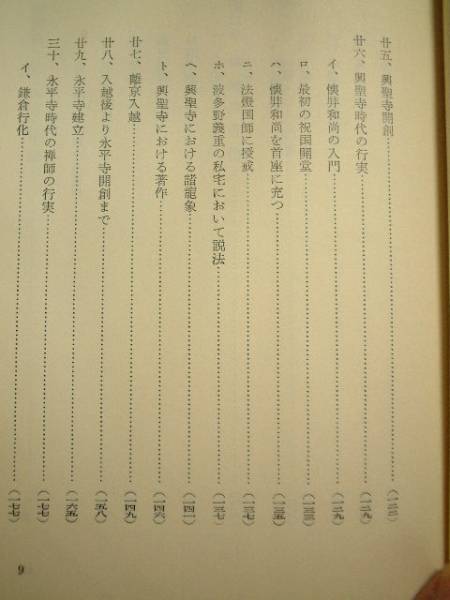 廿五、興聖寺開創……………………(一二二)
廿六、興聖寺時代の行実……………………(一二九)
イ、懐弉和尚の入門……………………(一二九)
ロ、最初の祝国開堂……………………(一三三)
ハ、懐弉和尚を首座に充つ……………………(一三五)
ニ、法燈国師に授戒……………………(一三七)
ホ、波多野義重の私宅において説法……………………(一三七)
ヘ、興聖寺における諸龍象……………………(一四一)
ト、興聖寺における著作……………………(一四六)
廿七、離京入越……………………(一四九)
廿八、入越後より永平寺開創まで……………………(一五八)
廿九、永平寺建立……………………(一六五)
三十、永平寺時代の禅師の行実……………………(一七七)
イ、鎌倉行化……………………(一七七)
9